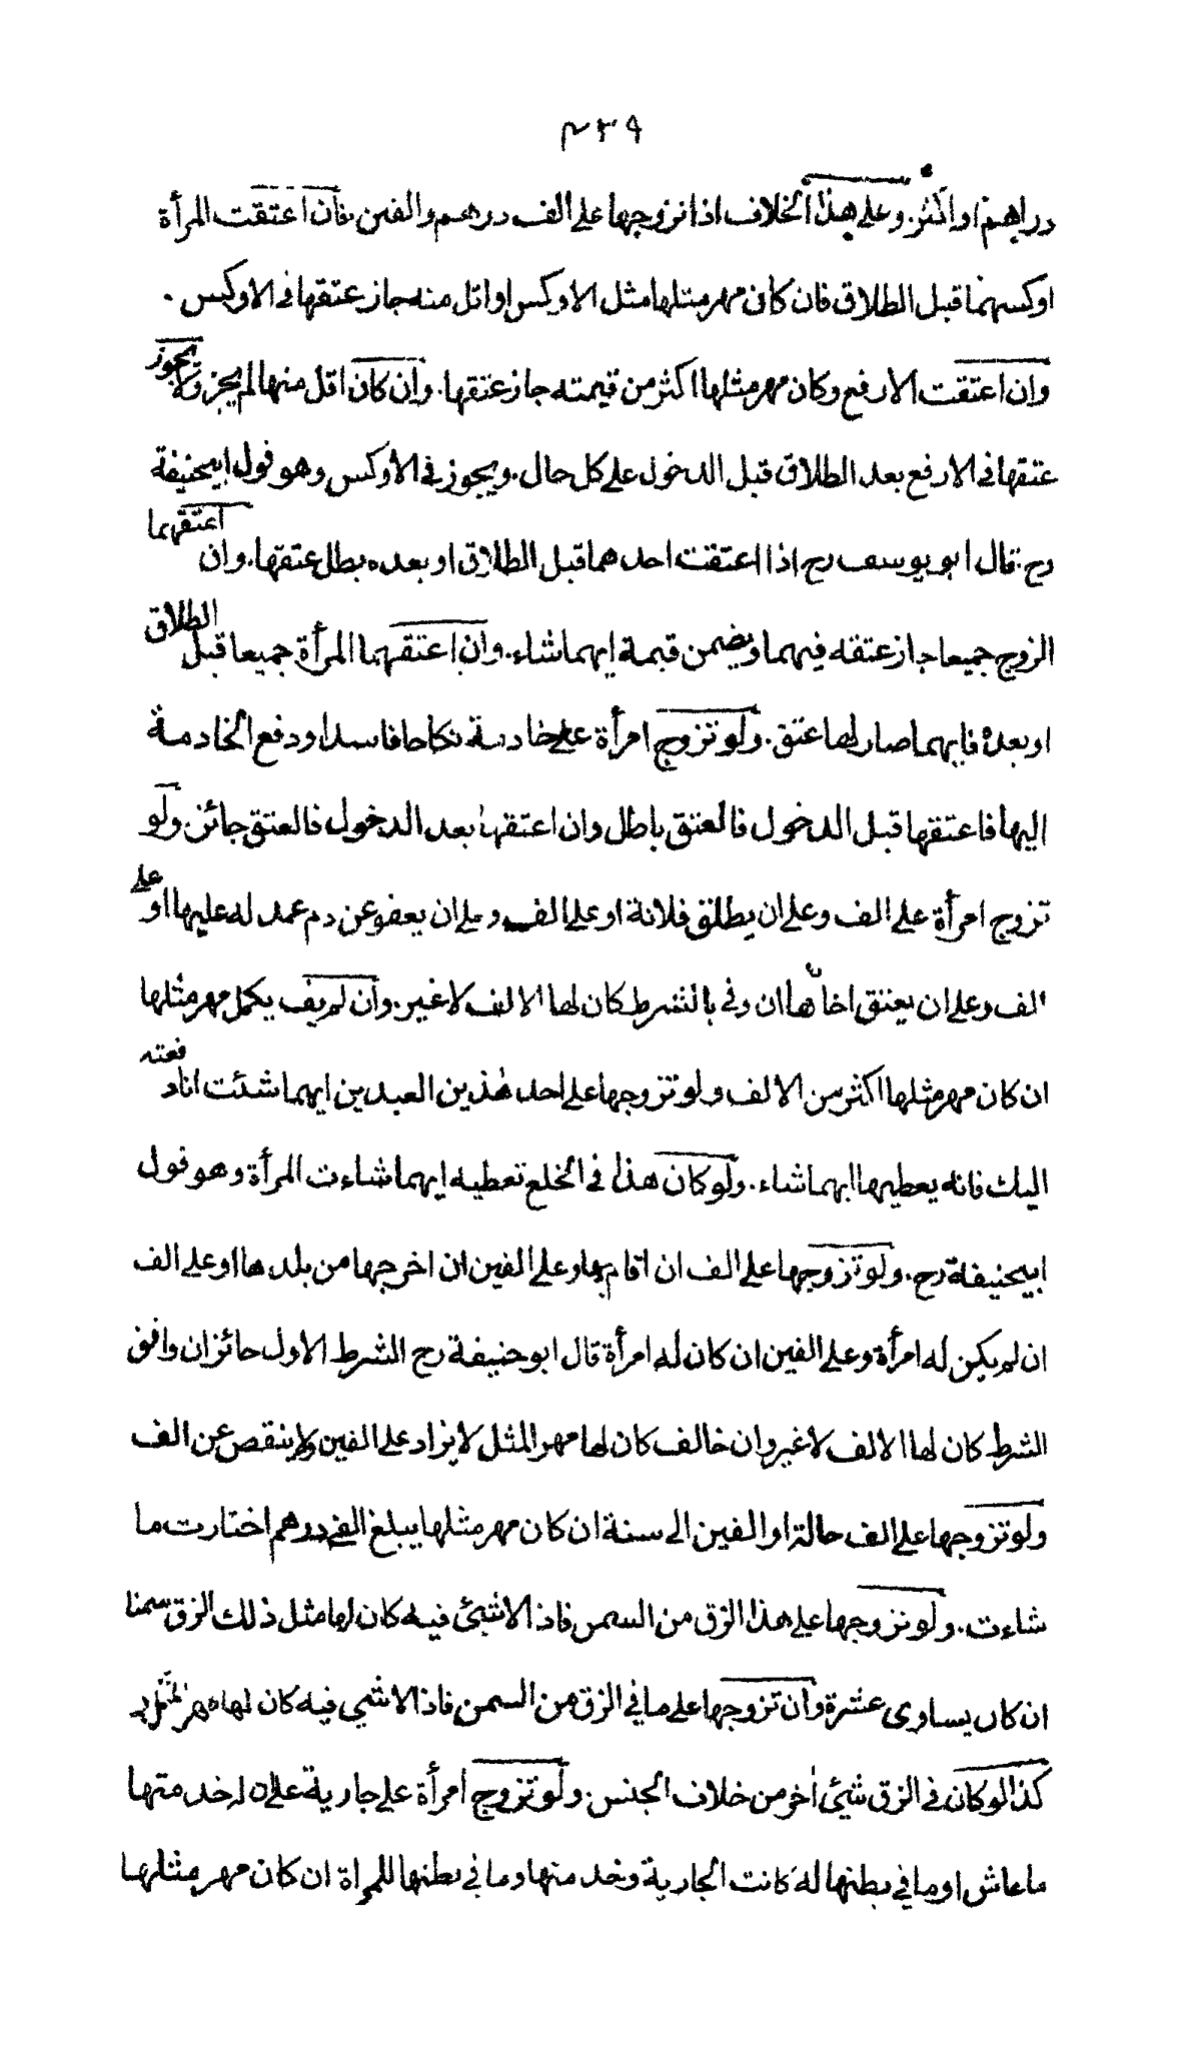 ٤٣٩
دراهم او اكثر. وعلى هذا الخلاف اذا تزوجها على الف درهم والفين فان اعتقت المرأة
اوكسهما قبل الطلاق فان كان مهر مثلها مثل الاوكس او اقل منه جاز عتقها فى الاوكس .
وان اعتقت الارفع وكان مهر مثلها اكثر من قيمته جاز عتقها. وان كان اقل منها لم يجز ولا يجوز
عتقها فى الارفع بعد الطلاق قبل الدخول على كل حال. ويجوز فى الاوكس وهو قول ابيحنيفة
رح. قال ابو يوسف رح اذا اعتقت احدهما قبل الطلاق او بعده بطل عتقها. وان اعتقهما
الزوج جميعا جاز عتقه فيهما ويضمن قيمة ايهما شاء. وان اعتقهما المرأة جميعا قبل الطلاق
او بعده فايهما صار لها عتق. ولو تزوج امرأة على خادمة نكاحا فاسدا ودفع الخادمة
اليها فاعتقها قبل الدخول فالعتق باطل وان اعتقها بعد الدخول فالعتق جائز. ولو
تزوج امرأة على الف وعلى ان يطلق فلانة او على الف وعلى ان يعفو عن دم عمد له عليها او على
الف وعلى ان يعتق اخاها ان وفى بالشرط كان لها الالف لاغير. وان لم يف يكمل مهر مثلها
ان كان مهر مثلها اكثر من الالف ولو تزوجها على احد هٰذين العبدين ايهما شئت انا دفعته
اليك فانه يعطيها ايهما شاء. ولو كان هذا فى الخلع تعطيه ايهما شاءت المرأة وهو قول
ابيحنيفة رح. ولو تزوجها على الف ان اقام بها وعلى الفين ان اخرجها من بلدها او على الف
ان لم يكن له امرأة وعلى الفين ان كان له امرأة قال ابو حنيفة رح الشرط الاول جائز ان وافق
الشرط كان لها الالف لاغير وان خالف كان لها مهر المثل لا يزاد على الفين ولا ينقص عن الف
ولو تزوجها على الف حالة او الفين الى سنة ان كان مهر مثلها يبلغ الفى درهم اختارت ما
شاءت. ولو تزوجها على هذا الزق من السمن فاذا لاشيئ فيه كان لها مثل ذلك الزق سمنا
ان كان يساوى عشرة وان تزوجها على ما في الزق من السمن فاذا لاشيي فيه كان لها مهر المثل
كذا لو كان فى الزق شيئ اٰخر من خلاف الجنس. ولو تزوج امرأة على جارية على ان له خدمتها
ما عاش او ما في بطنها له كانت الجارية وخدمتها وما في بطنها للمراة ان كان مهر مثلها